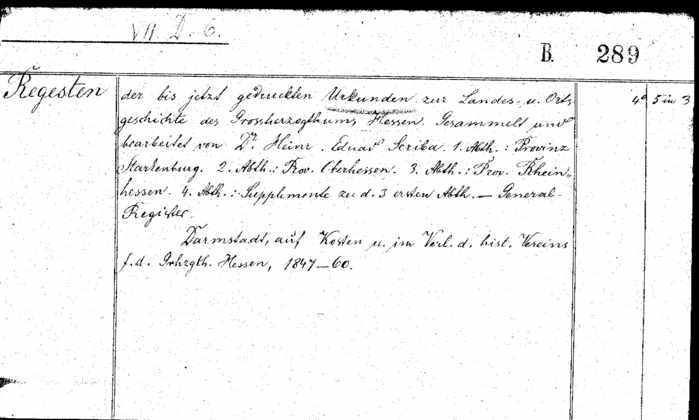 VII. D. 6.
B. 289
Regesten der bis jetzt gedruckten Urkunden zur Landes- u. Orts- 4° 5 in 3
geschichte des Grossherzogthums Hessen. Gesammelt und
bearbeitet von Dr. Heinr. Eduard Scriba. 1. Abth.: Provinz
Starkenburg. 2. Abth.: Prov. Oberhessen. 3. Abth.: Prov. Rhein-
hessen. 4. Abth.: Supplemente zu d. 3 ersten Abth. — General-
Register.
Darmstadt, auf Kosten u. im Verl. d. hist. Vereins
f. d. Grhzgth. Hessen, 1847—60.